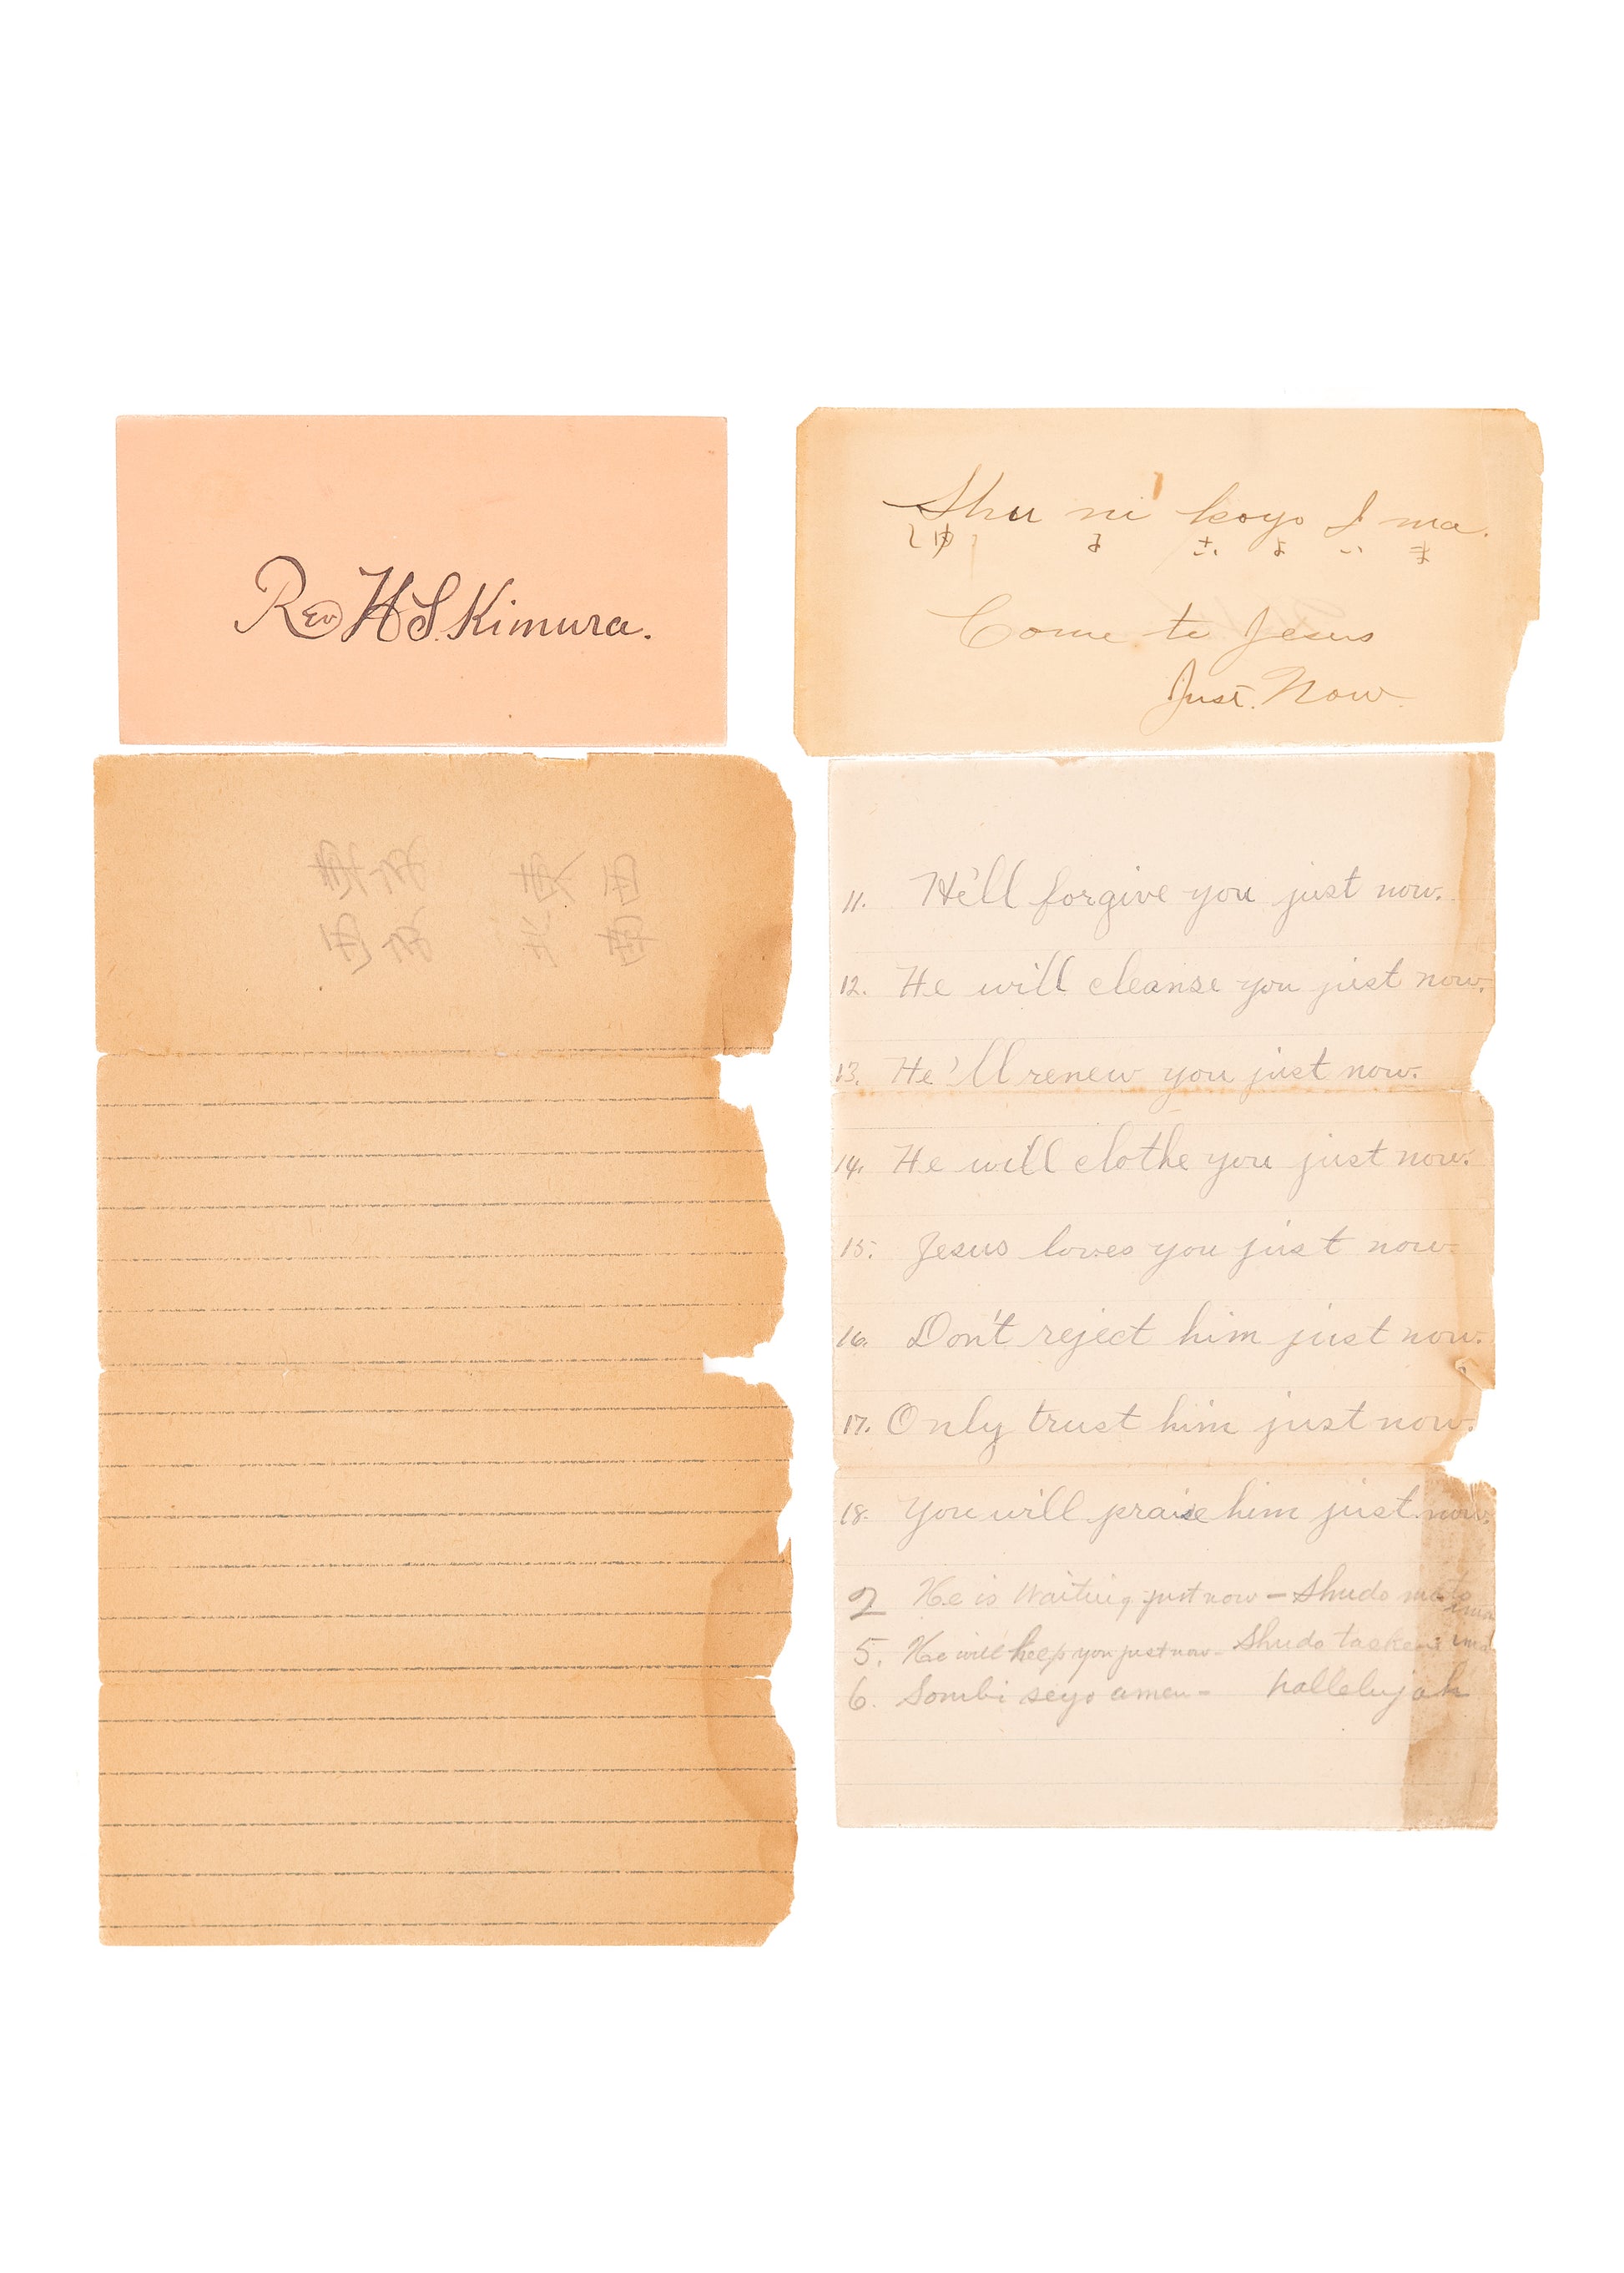 Rev H S. Kimura.
Shu ni koyo I ma.
しゆ に こ よ い ま
Come to Jesus
Just. Now
11. He'll forgive you just now.
12. He will cleanse you just now.
13. He'll renew you just now.
14. He will clothe you just now.
15. Jesus loves you just now.
16. Don't reject him just now.
17. Only trust him just now.
18. You will praise him just now.
2 He is Waiting just now - Shudo mato ima
5. He will keep you just now - Shudo ima
6. Sombi seyo amen - hallelujah